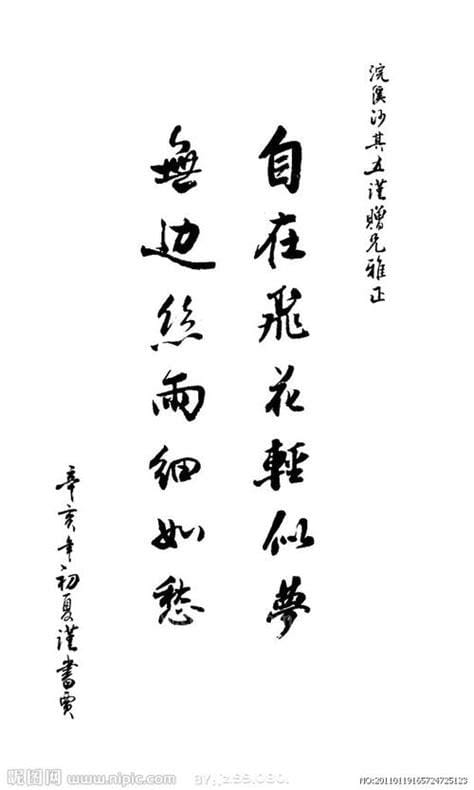 浣溪沙其五谨贈兄雅正
自在飛花輕似夢
無边絲雨細如愁
辛亥年初夏谨書賈
昵图网 www.nipic.com
NO:20110119165724725123